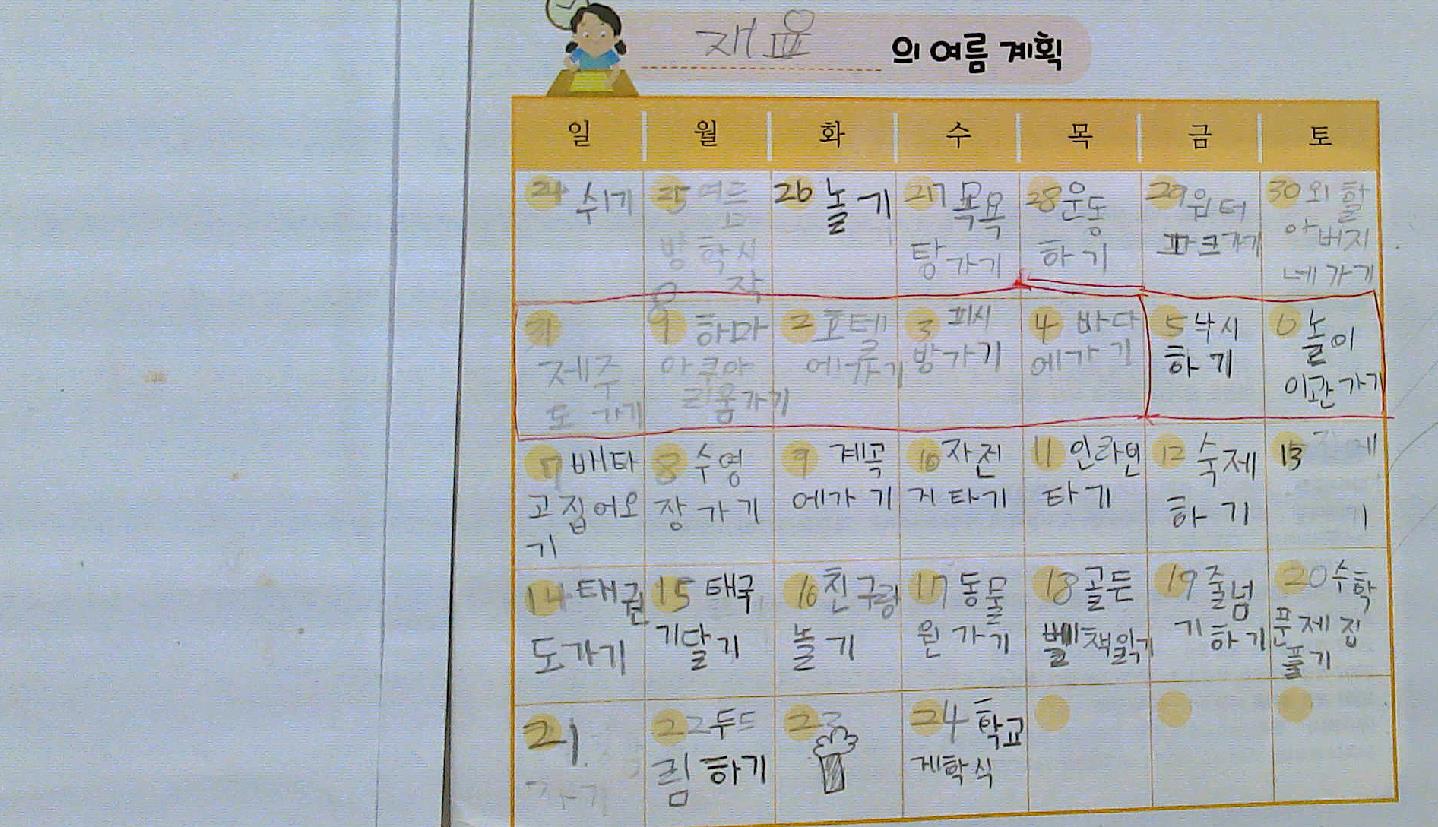 재표 의 여름 계획
일 월 화 수 목 금 토
24 쉬기
25 여름
방학시
작
26 놀기
27 목욕
탕가기
28 운동
하기
29 워터
파크가기
30 외할
아버지
네가기
31
제주
도 가기
8
1 하마
아쿠아
리움가기
2 호텔
에가기
3 피시
방가기
4 바다
에가기
5 낙시
하기
6 놀이
이관가기
7 배타
고집에오
기
8 수영
장가기
9 계곡
에가기
10 자전
거타기
11 인라인
타기
12 숙제
하기
13
기
14 태권
도가기
15 태국
기달기
16 친구랑
놀기
17 동물
원가기
18 골든
벨책읽기
19 줄넘
기하기
20 수학
문제집
풀기
21
자기
22 두드
림하기
23
24 학교
게학식